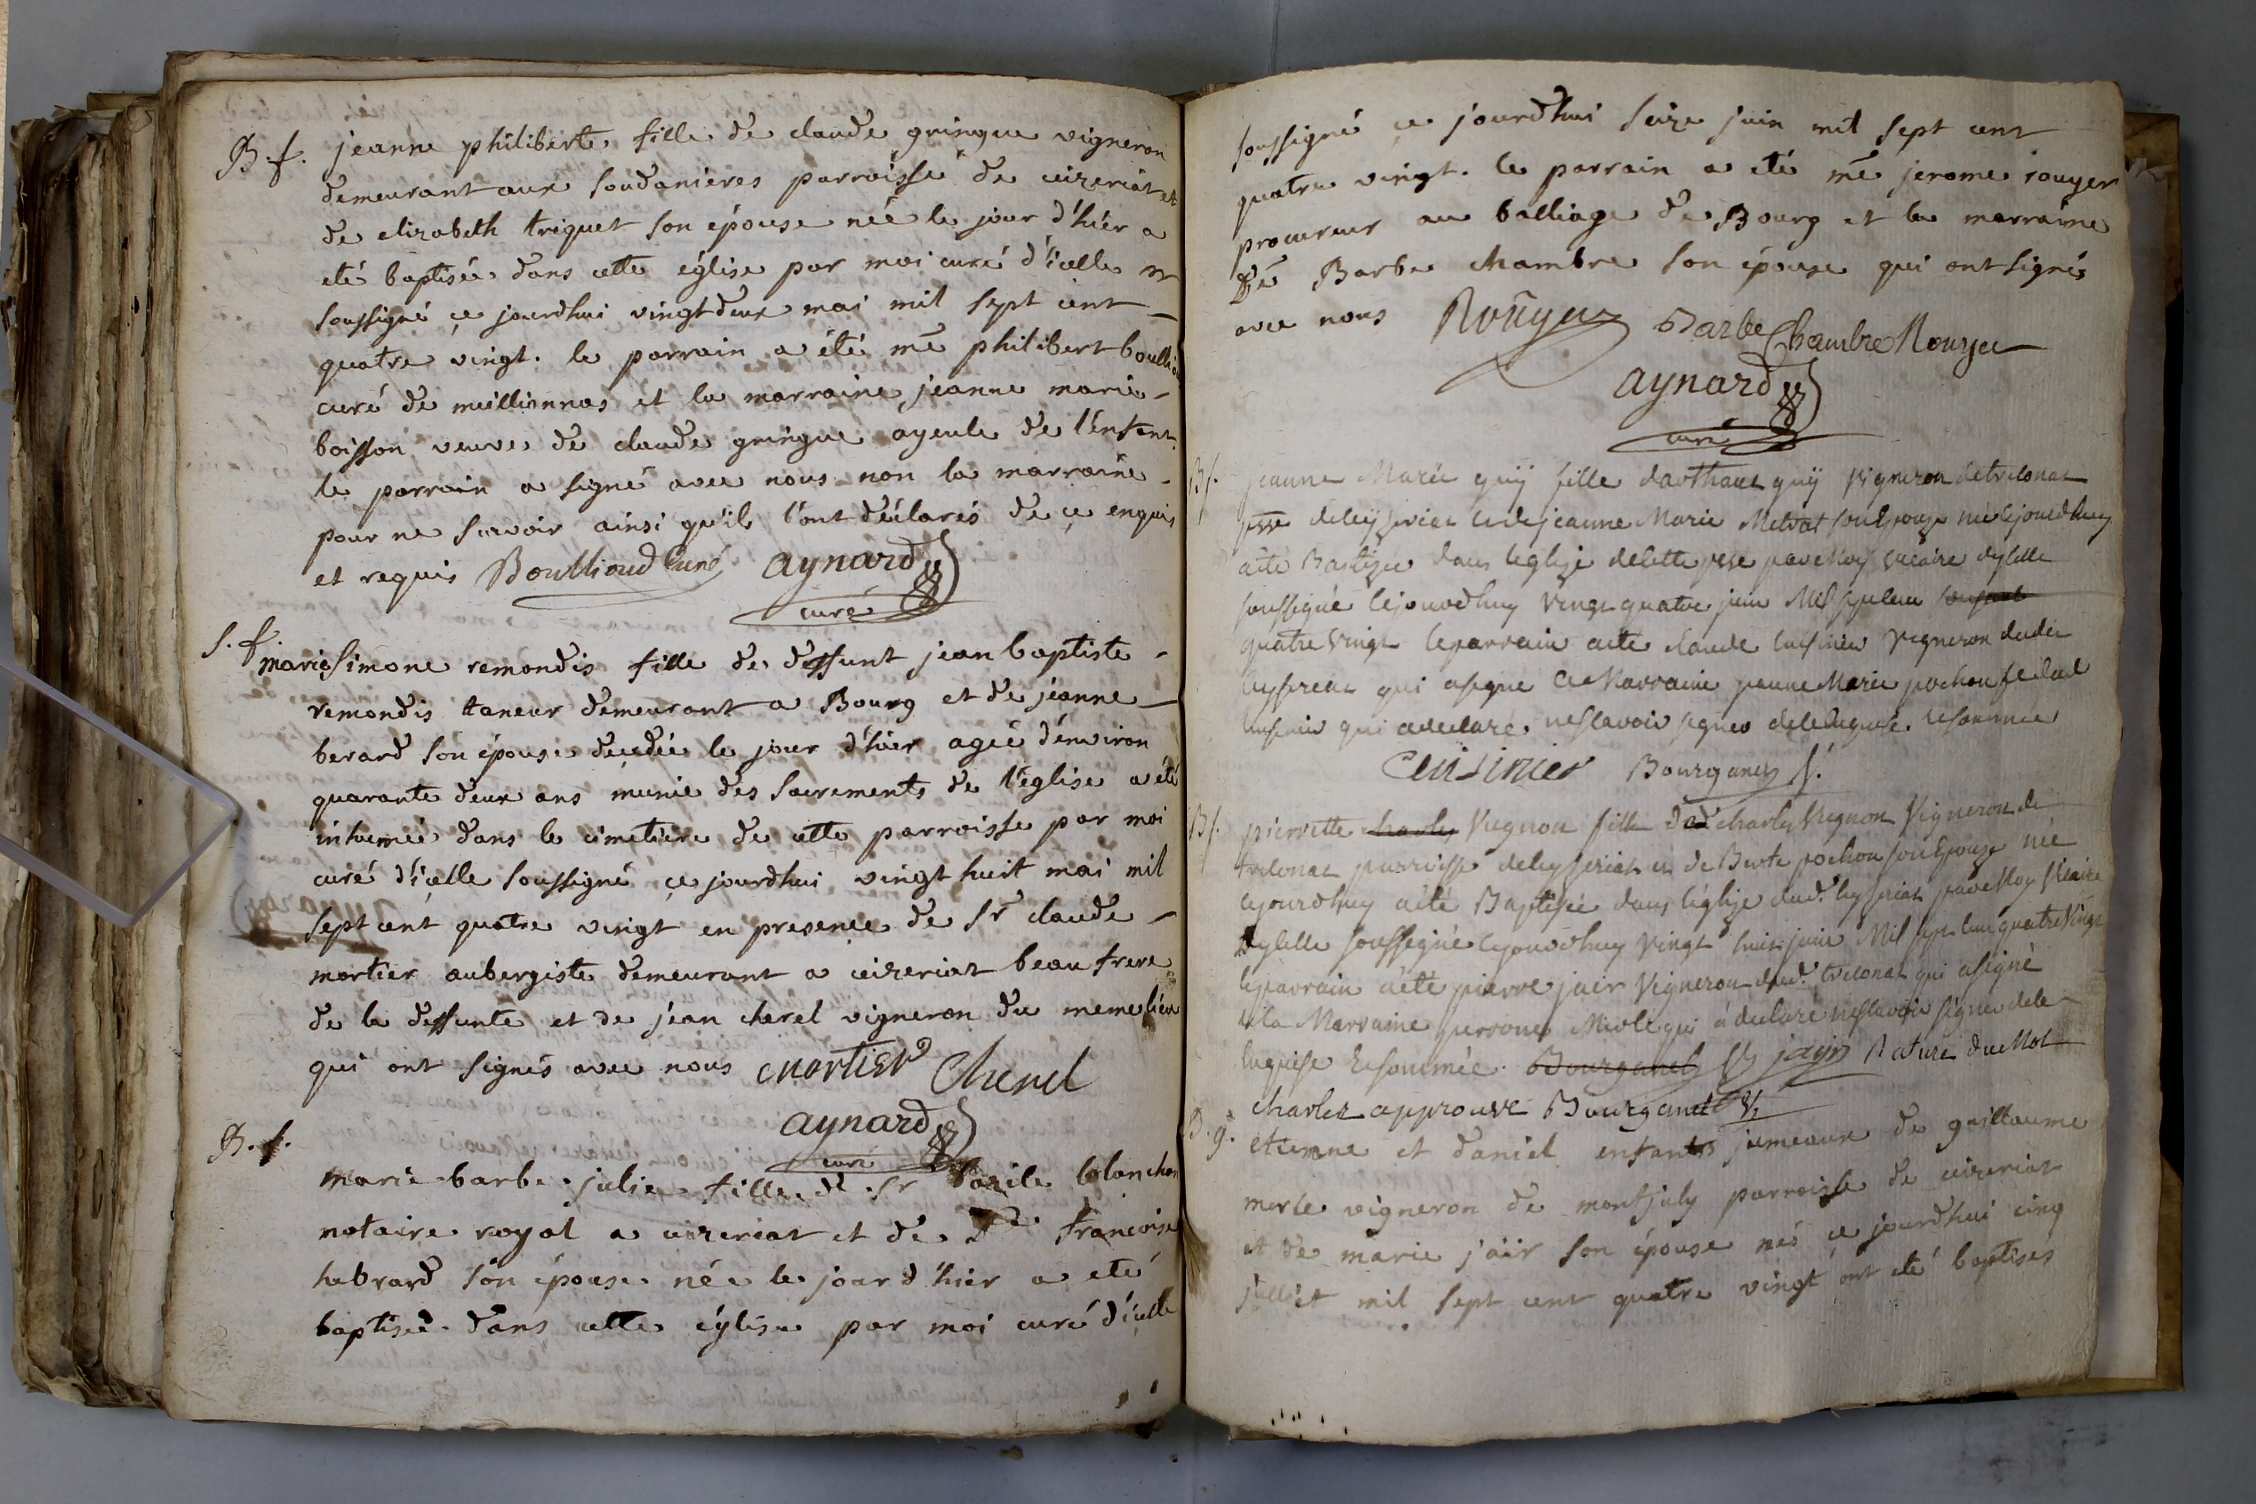 B. f. jeanne philiberte fille de claude gringue vigneron
demeurant aux soudanieres parroisse de ceizeriat et
de elizabeth triquet son épouse née le jour d'hiér a
eté baptisée dans cette église par moi curé d'icelle
soussigné ce jourdhui vingt deux mai mil sept cent
quatre vingt. le parrain a été mre philibert boullioud
curé de meillionnas et la marraine jeanne marie
boisson veuve de claude gringue ayeule de l'enfant.
le parrain a signé avec nous non la marraine
pour ne scavoir ainsi qu'il l'ont déclarés de ce enquis
et requis Boullioud Curé aynard
curé
S. f. marie Simone remondis fille de deffunt jean baptiste
remondis taneur demeurant a Bourg et de jeanne
berard son épouse décédée le jour d'hier agée d'environ
quarante deux ans munie des sacrements de l'église a été
inhumée dans le cimetiere de cette parroisse par moi
curé d'icelle soussigné ce jourdhui vingt huit mai mil
sept cent quatre vingt en presence de Sr claude
mortier aubergiste demeurant a ceizeriat beau frere
de la deffunte et de jean cherel vigneron du meme lieu
qui ont signés avec nous mortier Cherel
aynard
curé
B. f.
marie barbe julie fille de Sr bazile blanchon
notaire royal a ceizeriat et de Dlle francoise
hebrard son épouse née le jour d'hier a eté
baptisée dans cette église par moi curé d'icelle
soussigné ce jourdhui seize juin mil sept cent
quatre vingt. le parrain a eté mre jerome rouyer
procureur au balliage de Bourg et la marraine
De Barbe chambre son épouse qui ont signés
avec nous Roüyer Barbe Chambre Rouyer
aynard
curé
B f. jeanne Marie guÿ fille darthaut guÿ vigneron de treconat
psse deleyseriat et de jeanne Marie Melvat son Epouze née cejourdhuy
a été Baptizée dans leglize decette psse par Moy vicaire dycelle
soussigné cejourdhuy vingt quatre juin Mil sept cent
quatre vingt le parrain a été claude cuisinier vigneron dudit
leyseriat qui a signé la Marraine jeanne Marie pochon fe dud
cuisinier qui a declaré ne scavoir signer dele enquise et sommée
Ceusinier Bourganel V.
B f. pierrette charles Vugnon fille dud charles Vugnon Vigneron de
treconat parroisse deleyseriat et de Berte pochon son Epouze née
cejourdhuy a été Baptisée dans léglize dudt leyseriat par Moy Vicaire
dycelle soussigné cejourdhuy vingt huit juin Mil sept cent quatre vingt
le parrain a été pierre jair Vigneron dudt treconat qui a signé
et la Marraine Mirle qui a declaré ne scavoir signer dele
Enquise Et sommée. Bourganel V jayr Rature du Mot
charles approuvé Bourganel V
B. g. etienne et daniel enfants jumeaux de guillaume
merle vigneron de montjuly parroisse de ceizeriat
et de marie jaïr son épouse nés ce jourdhui cinq
juillet mil sept cent quatre vingt ont eté baptisés